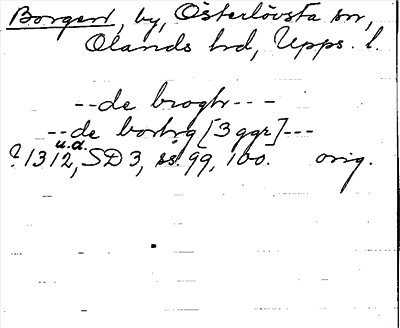 Borgard, by, Österlövsta sn,
Olands hd, Upps. l.
--de brogh---
--de borhrg [3 ggr]---
u.d.
?1312, SD3, ss. 99, 100. orig.